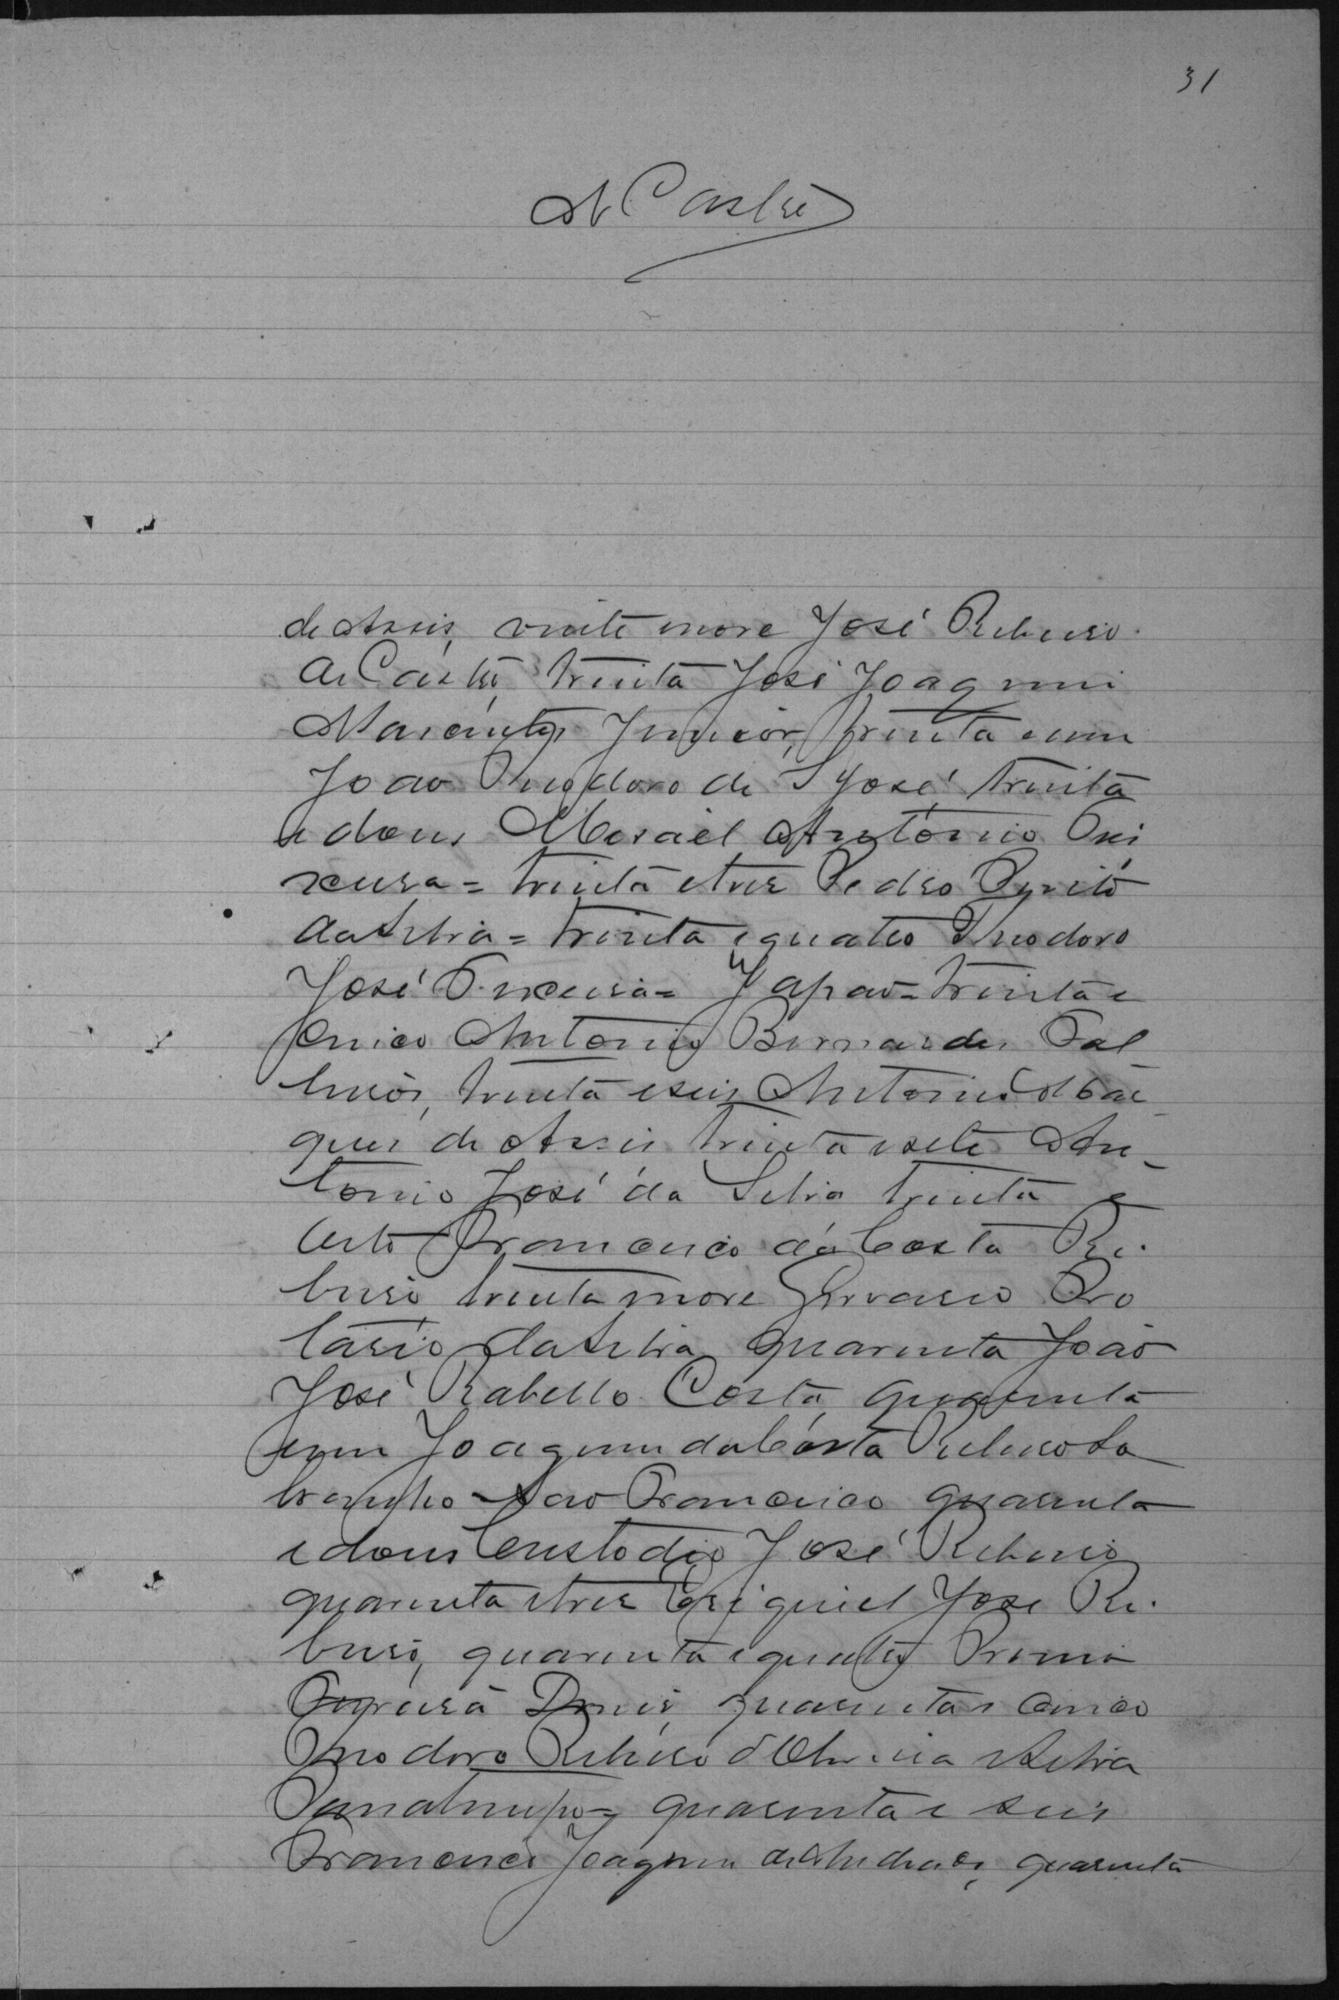 31
A Castro
de Assis, vinte nove José Ribeiro
de Castro, trinta José Joaquim
Junior, trinta e um
João Theodoro de S José, trinta
e dous Misael Antonio Tei
xeira = trinta e tres Pedro
da Silva = trinta e quatro Theodoro
José Teixeira = Japão = trinta e
cinco Antonio Bernardes Val
trinta e seis Antonio
ques de Assis trinta e sete An-
tonio José da Silva trinta e
oito Francisco da Costa Ri-
beiro trinta nove Gervasio Pro
tasio da Silva, quarenta João
José Rabello Costa, quarenta
e um Joaquim da Costa Ribeiro So
brinho = São Francisco quarenta
e dous Custodio José Ribeiro
quarenta e tres Ezequiel José Ri-
beiro, quarenta e quatro
Diniz, quarenta e cinco
Theodoro Ribeiro d'Oliveira e Silva
quarenta e seis
Francisco Joaquim de Andrade, quarenta